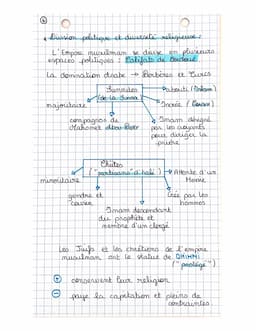 • Division politique et diversité religieuse :
L'Empire musulman se divise en plusieurs
espaces politiques : Califats de Cordoue
La domination arabe → Berbères et Turcs
Sunnites
de la sunna
majoritaire
compagnons de
Mahomet
Imam désigné
par les croyants
pour diriger la
prière
Chiites
("partisans" d'Ali)
minoritaire
gendre et
cousin
Imam descendant
du prophète et
membre d'un clergé
Attente d'un
Messie
Créé par les
hommes
Les Juifs et les chrétiens de l'empire
musulman, ont le statut de DHIMMI
("protégé")
+ conservent leur religion
− paye la capitation et pleins de
contraintes.